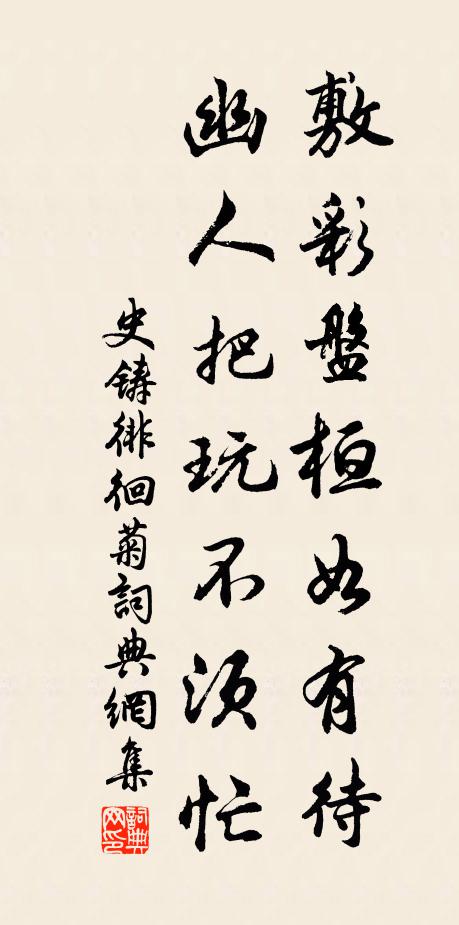 敷彩盤桓如有待
幽人把玩不須忙
史鑄徘徊菊詞典網集
詞典
网印